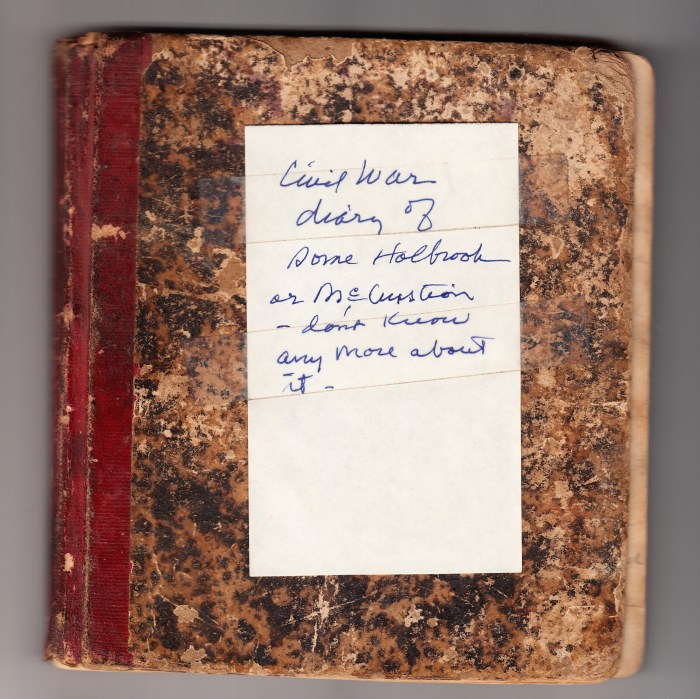 Civil War
diary of
Some Holbrook
or McCustion
- don't know
any more about
it -